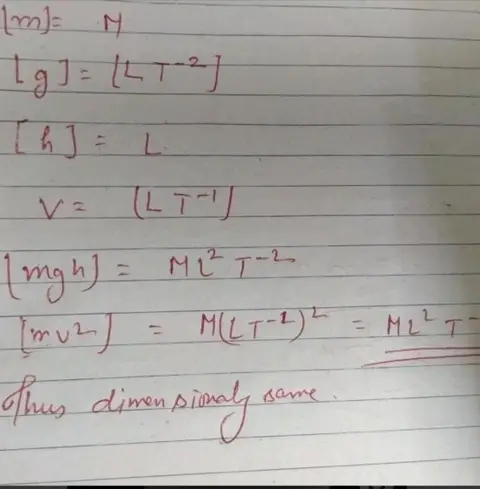 [m]= M
[g]= [L T⁻²]
[h]= L
V= (L T⁻¹)
[mgh] = ML² T⁻²
[mv²] = M(LT⁻¹)² = ML² T⁻
Thus dimensionaly same.